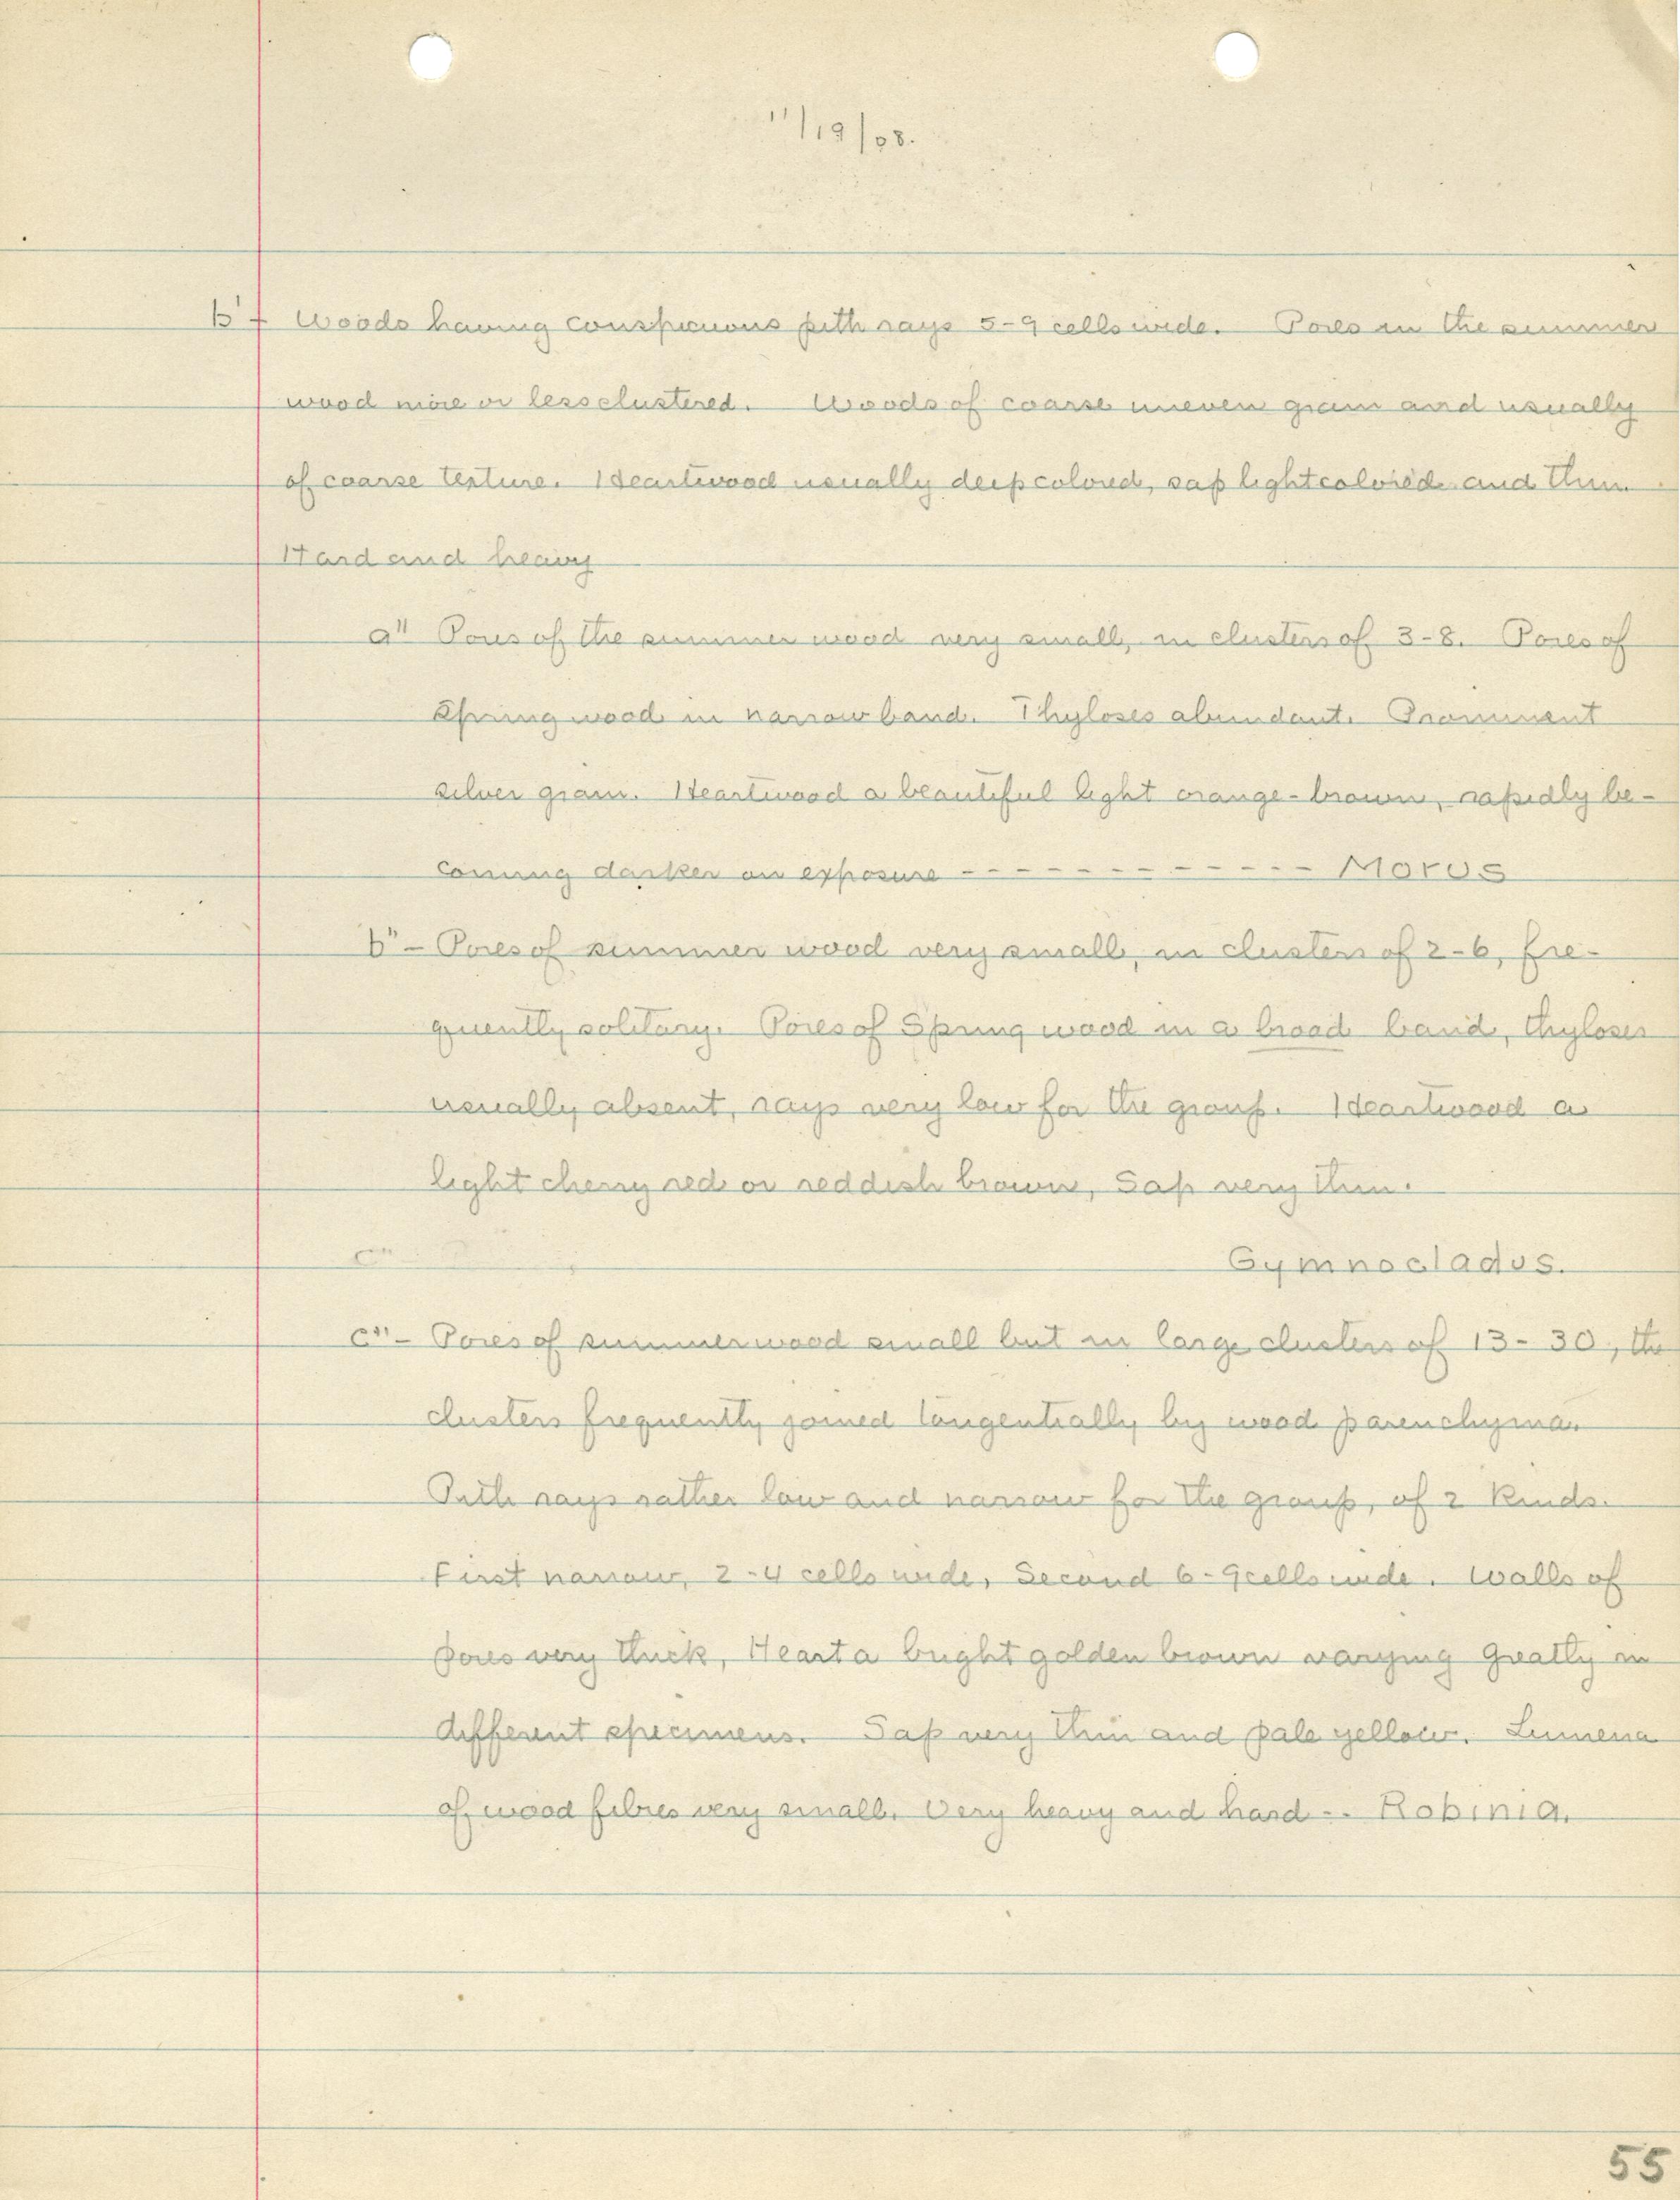 11/19/08.
b' - Woods having conspicuous pith rays 5-9 cells wide. Pores in the summer
wood more or less clustered. Woods of coarse uneven grain and usually
of coarse texture. Heartwood usually deep colored, sap light colored and thin
Hard and heavy
a" Pores of the summer wood very small, in clusters of 3-8. Pores of
Spring wood in narrow band. Thyloses abundant. Prominent
silver grain. Heartwood a beautiful light orange-brown, rapidly be-
coming darker on exposure - - - - - - - - - - - - Morus
b" - Pores of summer wood very small, in clusters of 2-6, fre-
quently solitary. Pores of Spring wood in a broad band, thyloses
usually absent, rays very low for the group. Heartwood a
light cherry red or reddish brown, Sap very thin.
c"
Gymnoclados.
c" - Pores of summer wood small but in large clusters of 13-30, the
clusters frequently joined tangentially by wood parenchyma.
Pith rays rather low and narrow for the group, of 2 kinds.
First narrow, 2-4 cells wide, Second 6-9 cells wide. Walls of
pores very thick, Heart a bright golden brown varying greatly in
different specimens. Sap very thin and pale yellow. Lumena
of wood fibres very small. Very heavy and hard -- Robinia.
55